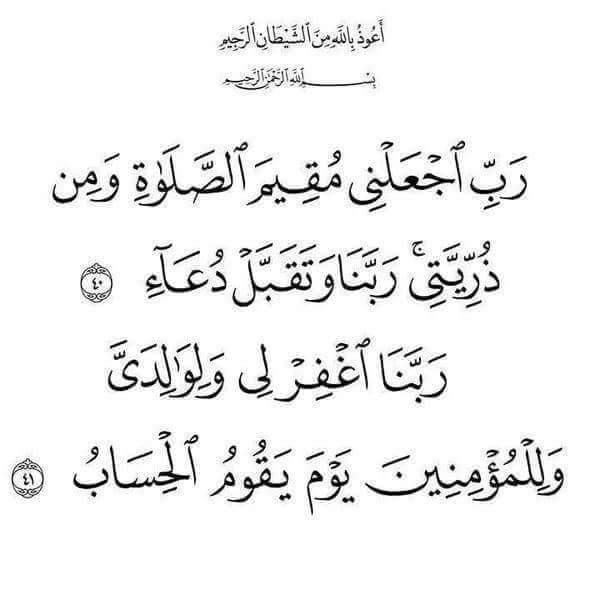 أَعُوذُ بِاللَّهِ مِنَ الشَّيْطَانِ الرَّجِيمِ
بِسْمِ اللَّهِ الرَّحْمَٰنِ الرَّحِيمِ
رَبِّ ٱجْعَلْنِى مُقِيمَ ٱلصَّلَوٰةِ وَمِن
ذُرِّيَّتِى ۚ رَبَّنَا وَتَقَبَّلْ دُعَآءِ ٤٠
رَبَّنَا ٱغْفِرْ لِى وَلِوَٰلِدَىَّ
وَلِلْمُؤْمِنِينَ يَوْمَ يَقُومُ ٱلْحِسَابُ ٤١